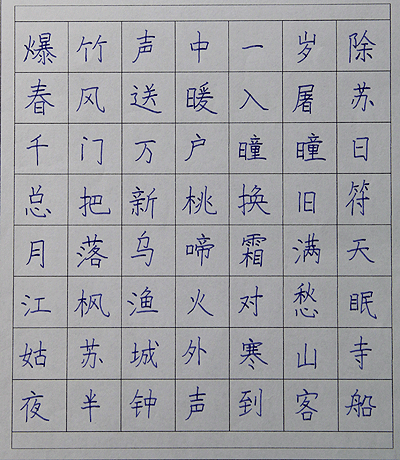 爆竹声中一岁除
春风送暖入屠苏
千门万户瞳瞳日
总把新桃换旧符
月落乌啼霜满天
江枫渔火对愁眠
姑苏城外寒山寺
夜半钟声到客船